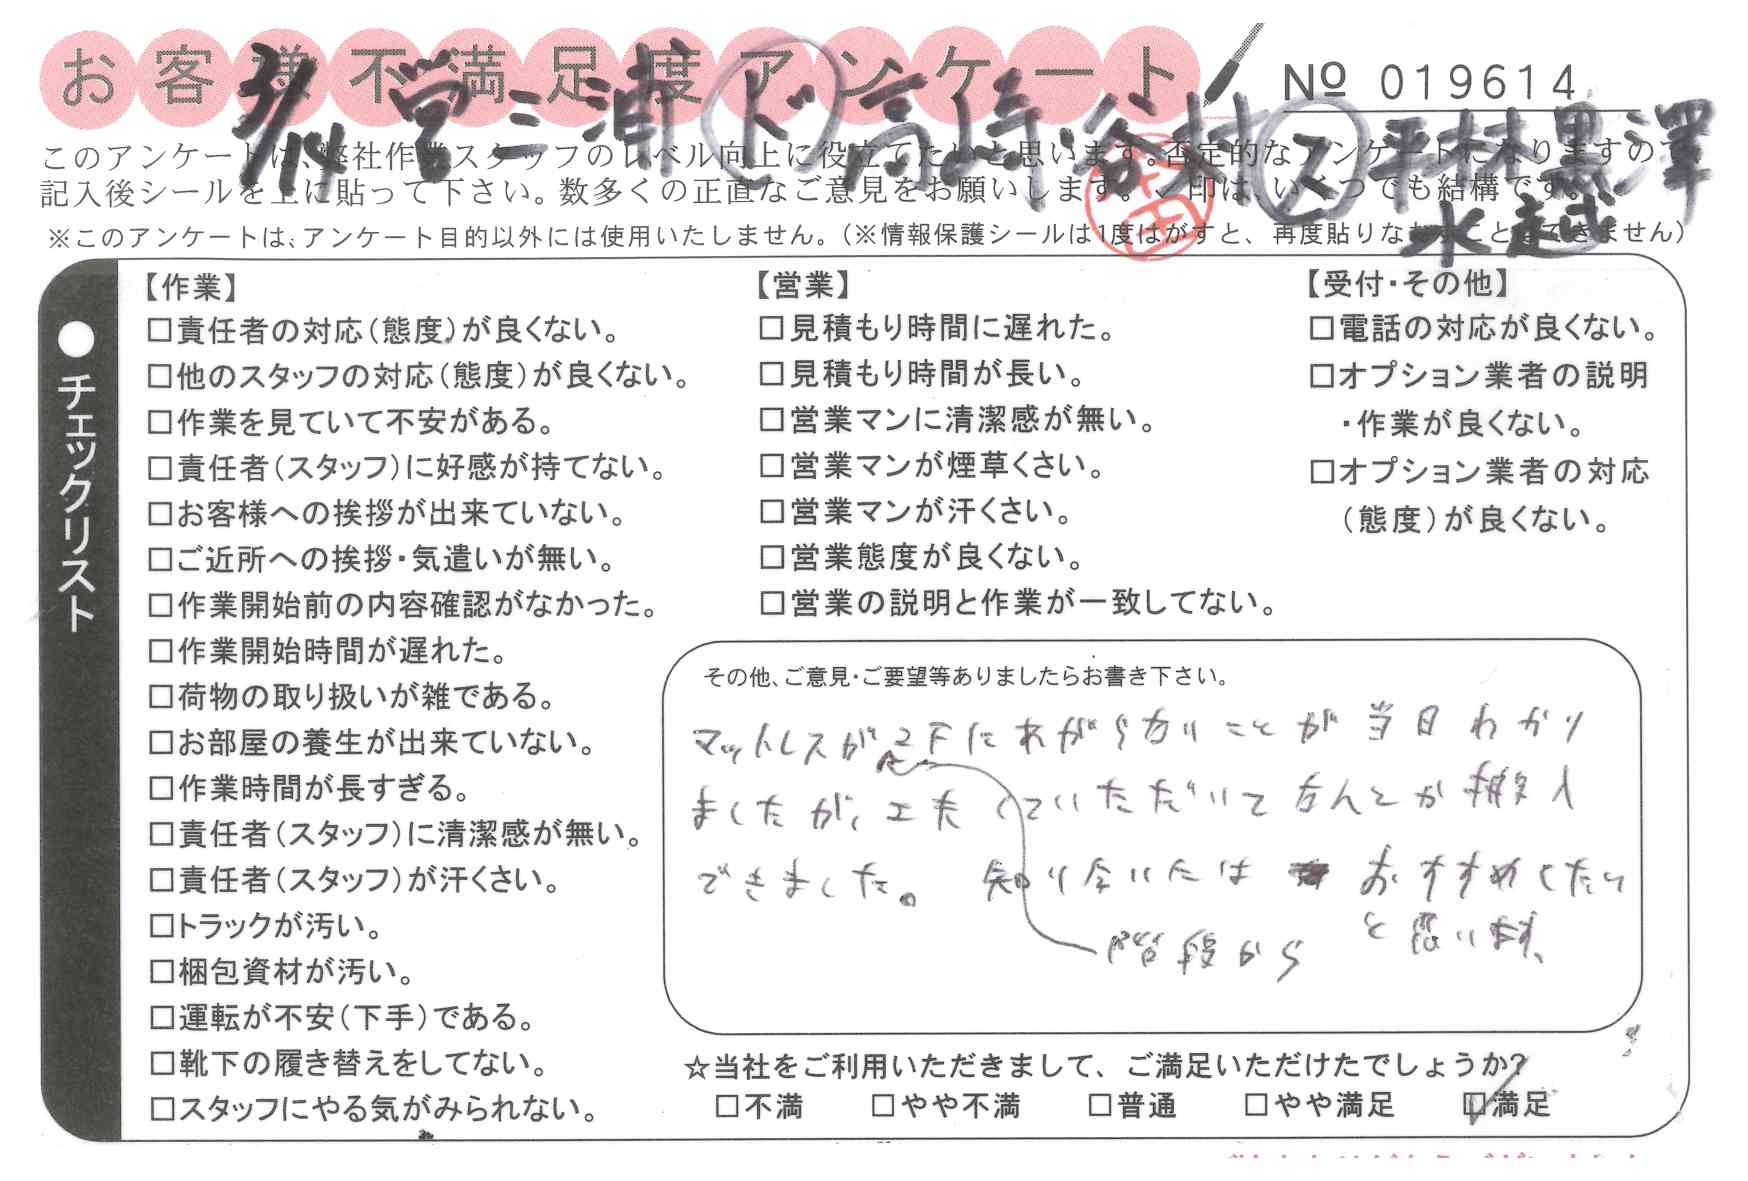 お客様不満足度アンケート
№ 019614
3/14 営 三浦 ド 高崎 谷村 ス 平林 黒澤
水越
このアンケートは、弊社作業スタッフのレベル向上に役立てたいと思います。否定的なアンケートになりますので、
記入後シールを上に貼って下さい。数多くの正直なご意見をお願いします。✓印は、いくつでも結構です。
※このアンケートは、アンケート目的以外には使用いたしません。(※情報保護シールは1度はがすと、再度貼りなおすことはできません)
●チェックリスト
【作業】
□責任者の対応(態度)が良くない。
□他のスタッフの対応(態度)が良くない。
□作業を見ていて不安がある。
□責任者(スタッフ)に好感が持てない。
□お客様への挨拶が出来ていない。
□ご近所への挨拶・気遣いが無い。
□作業開始前の内容確認がなかった。
□作業開始時間が遅れた。
□荷物の取り扱いが雑である。
□お部屋の養生が出来ていない。
□作業時間が長すぎる。
□責任者(スタッフ)に清潔感が無い。
□責任者(スタッフ)が汗くさい。
□トラックが汚い。
□梱包資材が汚い。
□運転が不安(下手)である。
□靴下の履き替えをしてない。
□スタッフにやる気がみられない。
【営業】
□見積もり時間に遅れた。
□見積もり時間が長い。
□営業マンに清潔感が無い。
□営業マンが煙草くさい。
□営業マンが汗くさい。
□営業態度が良くない。
□営業の説明と作業が一致してない。
【受付・その他】
□電話の対応が良くない。
□オプション業者の説明
・作業が良くない。
□オプション業者の対応
(態度)が良くない。
その他、ご意見・ご要望等ありましたらお書き下さい。
マットレスが2Fにあがらないことが当日わかり
ましたが、工夫していただいてなんとか搬入
できました。知り合いには おすすめしたい
と思います。
階段から
☆当社をご利用いただきまして、ご満足いただけたでしょうか?
□不満 □やや不満 □普通 □やや満足 ☑満足